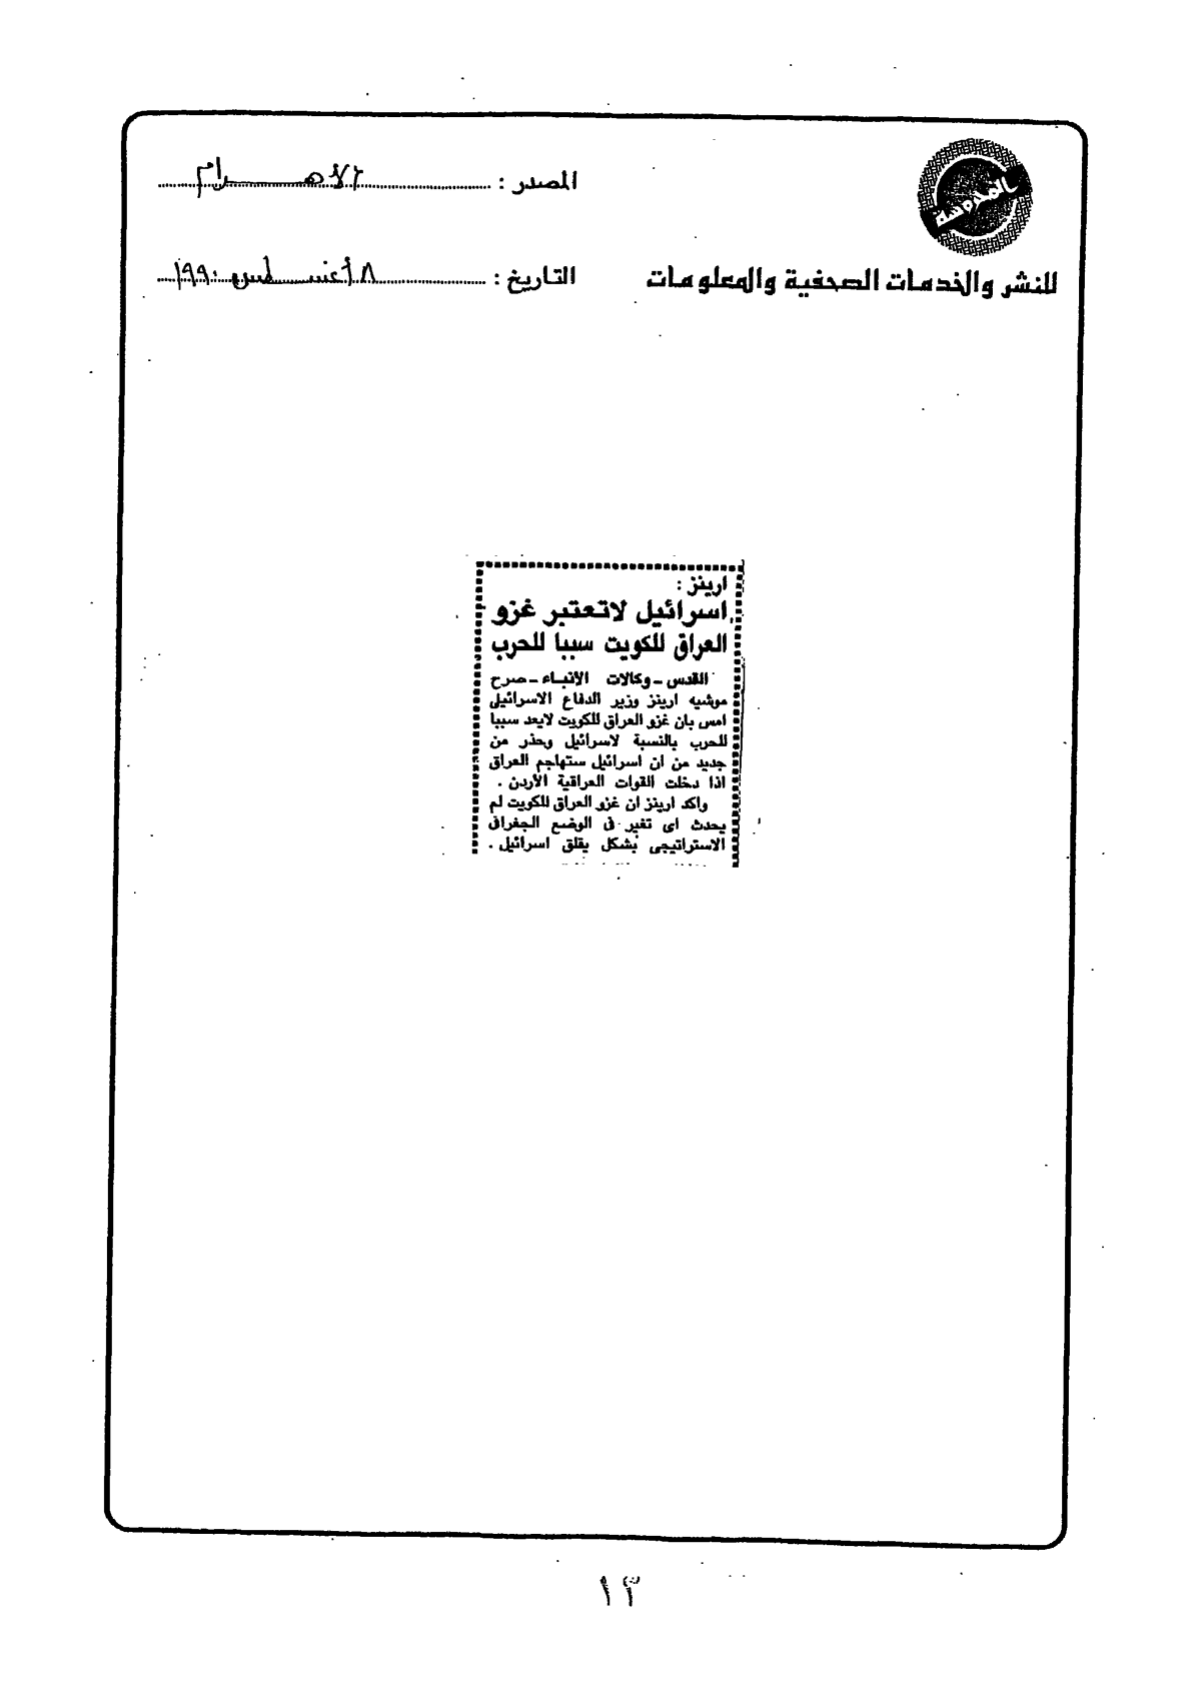 المحروسة
للنشر والخدمات الصحفية والمعلومات
المصدر : الأهرام
التاريخ : ٨ أغسطس ١٩٩٠
ارينز :
اسرائيل لاتعتبر غزو
العراق للكويت سببا للحرب
القدس - وكالات الأنباء - صرح
موشيه ارينز وزير الدفاع الاسرائيلى
امس بان غزو العراق للكويت لايعد سببا
للحرب بالنسبة لاسرائيل وحذر من
جديد من ان اسرائيل ستهاجم العراق
اذا دخلت القوات العراقية الأردن .
واكد ارينز ان غزو العراق للكويت لم
يحدث اى تغير فى الوضع الجغرافى
الاستراتيجى بشكل يقلق اسرائيل .
١٣